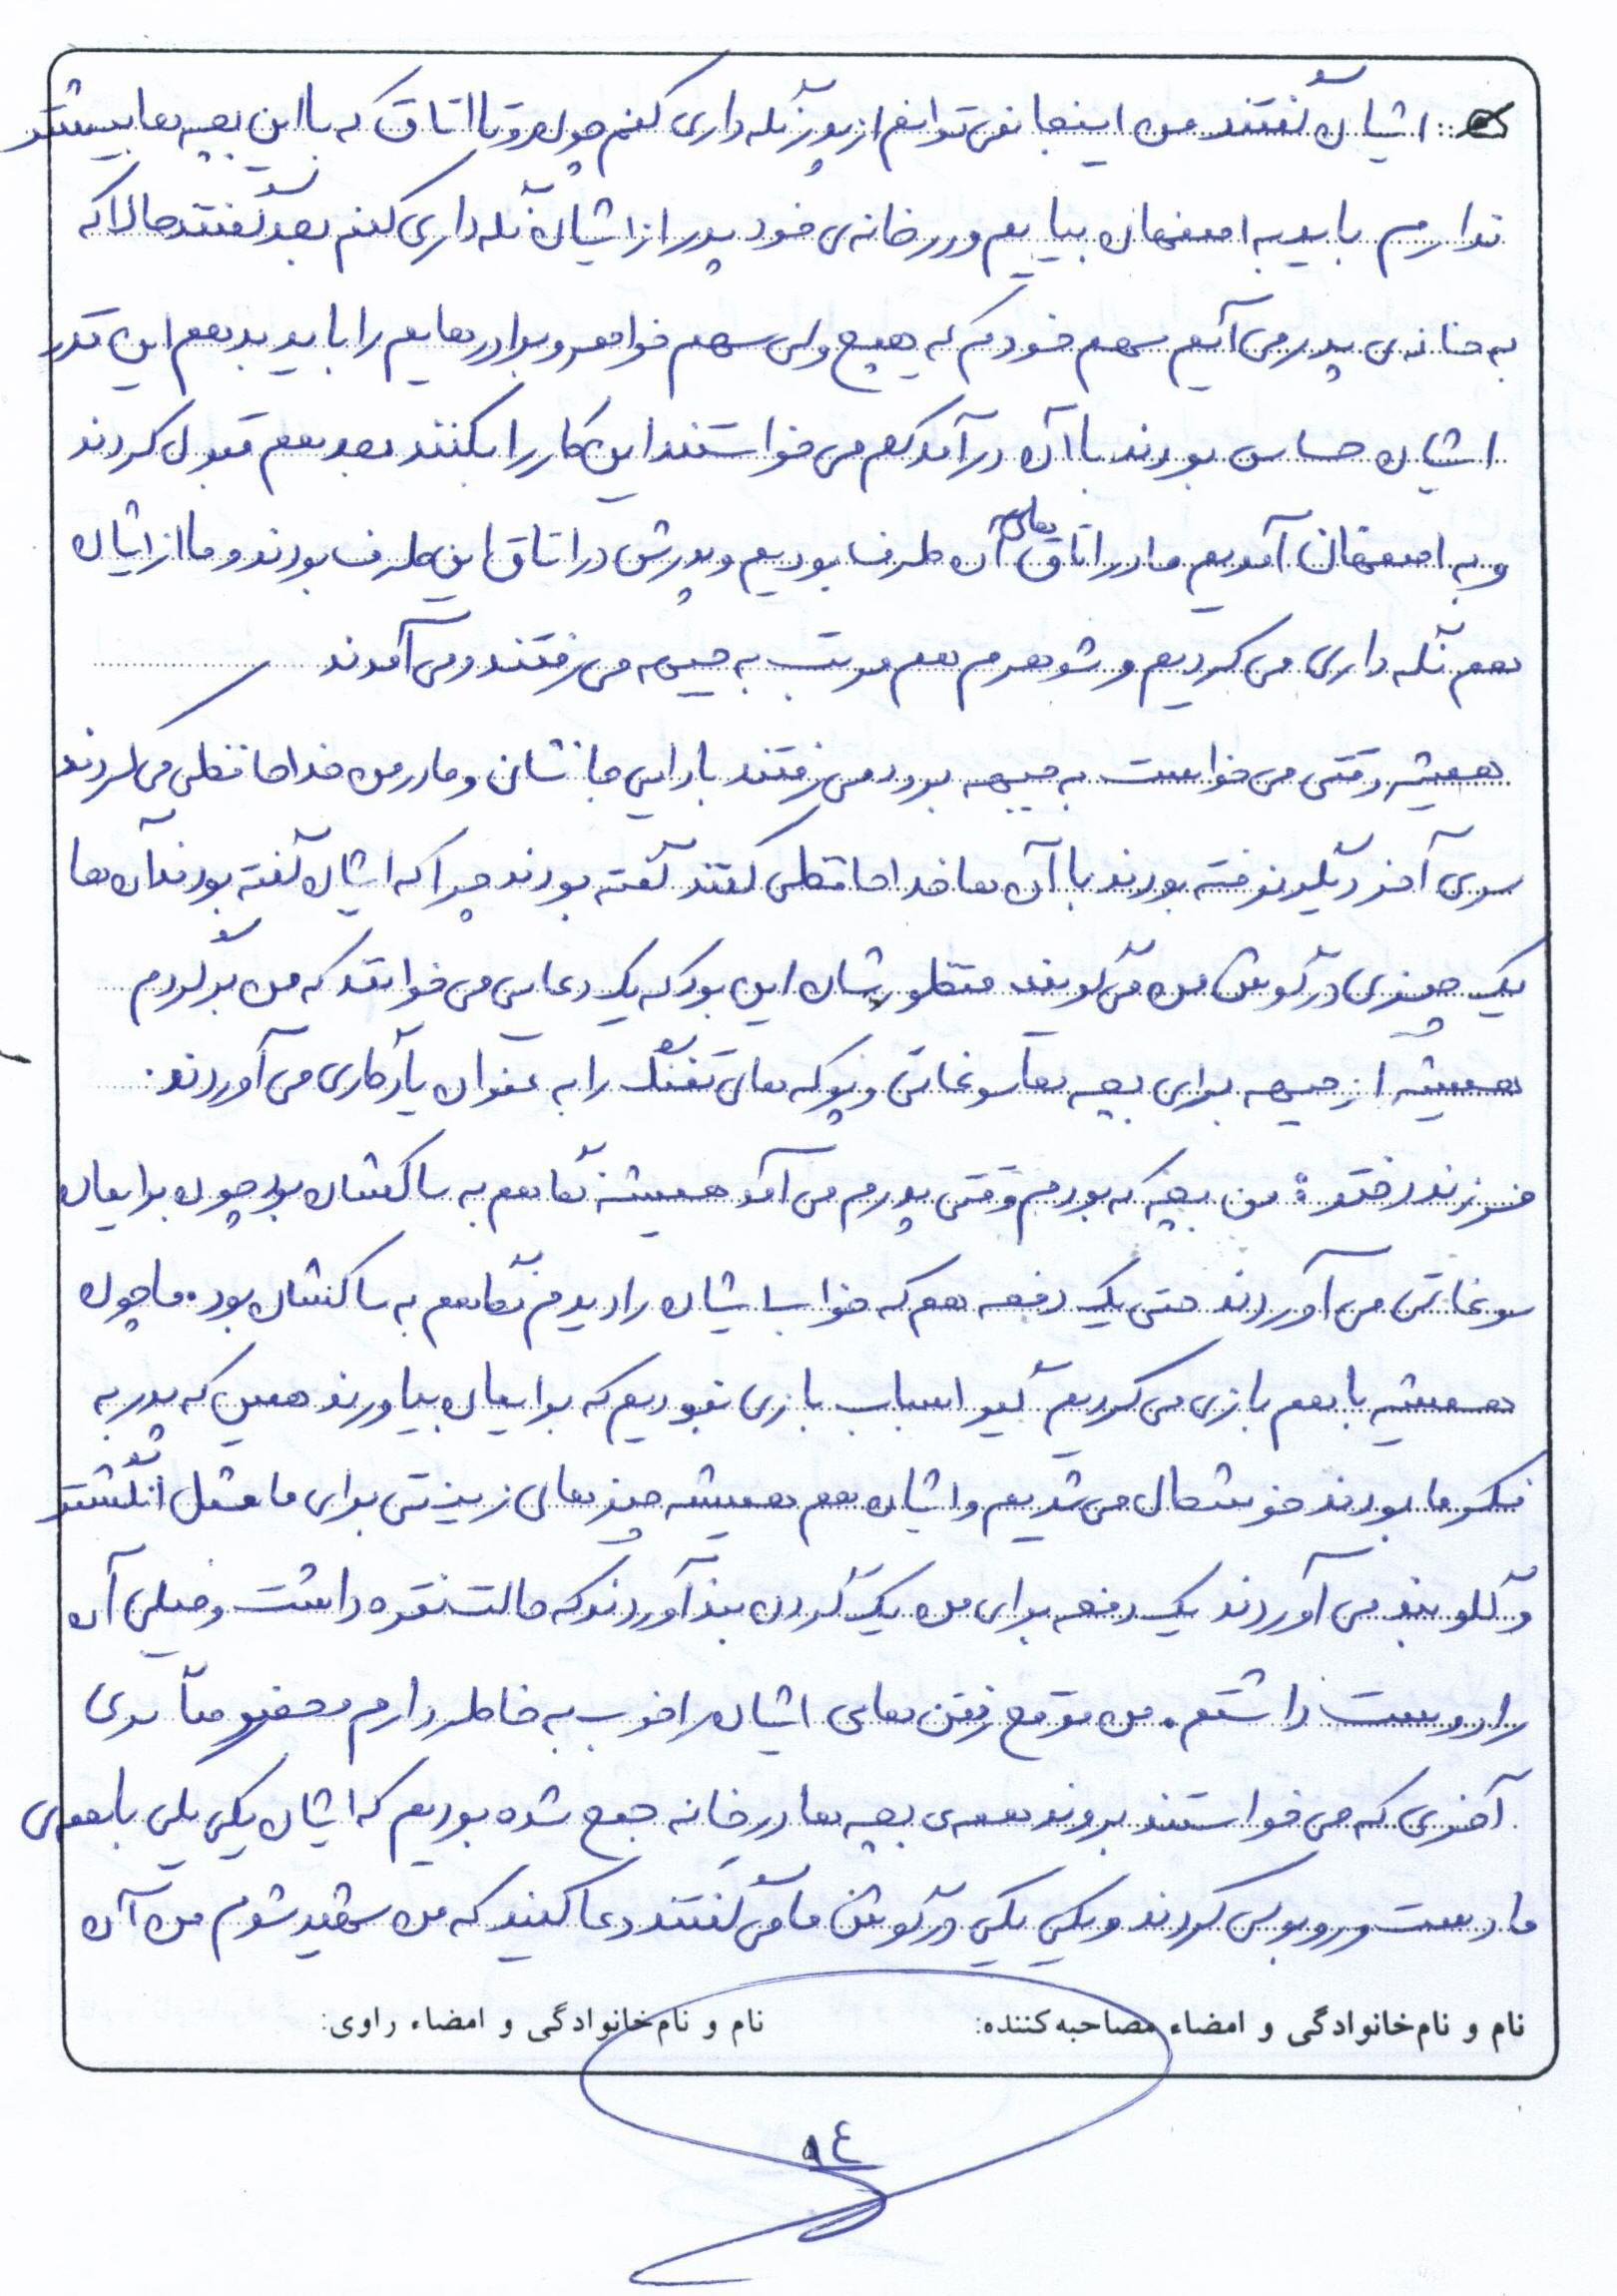 ایشان گفتند من اینجا نمی توانم از پدر نگه داری کنم چون دو تا اتاق که با این بچه ها بیشتر
نداریم باید به اصفهان بیایم و در خانه ی خود پدر از ایشان نگه داری کنم بعد گفتند حالا که
به خانه ی پدر می آیم سهم خودم که هیچ ولی سهم خواهر و برادرهایم را باید بدهم این قدر
ایشان حساس بودند با آن درآمد کم می خواستند این کار را بکنند بعد هم قبول کردند
و به اصفهان آمدیم ما در اتاق های آن طرف بودیم و پدرش در اتاق این طرف بودند و ما از ایشان
هم نگه داری می کردیم و شوهرم هم مرتب به جبهه می رفتند و می آمدند
همیشه وقتی می خواست به جبهه برود می رفتند با دایی جانشان و مادر من خداحافظی می کردند
سری آخر دیگر نرفته بودند با آن ها خداحافظی کنند گفته بودند چرا که ایشان گفته بودند آن ها
یک چیزی در گوش من می گویند منظورشان این بود که یک دعایی می خوانند که من برگردم
همیشه از جبهه برای بچه ها سوغاتی و پوکه های تفنگ را به عنوان یادگاری می آوردند.
فرزند دختر: من بچه که بودم وقتی پدرم می آمد همیشه نگاهم به ساکشان بود چون برایمان
سوغاتی می آوردند حتی یک دفعه هم که خواب ایشان را دیدم نگاهم به ساکشان بود. ما چون
همیشه با هم بازی می کردیم گیر اسباب بازی نبودیم که برایمان بیاورند همین که پدر به
فکر ما بودند خوشحال می شدیم و ایشان هم همیشه چیزهای زینتی برای ما مثل انگشتر
و گلوبند می آوردند یک دفعه برای من یک گردن بند آوردند که حالت نقره داشت و خیلی آن
را دوست داشتم. من موقع رفتن های ایشان را خوب به خاطر دارم مخصوصاً سری
آخری که می خواستند بروند همه ی بچه ها در خانه جمع شده بودیم که ایشان یکی یکی با همه ی
ما دست و روبوسی کردند و یکی یکی در گوش ما می گفتند دعا کنید که من شهید شوم من آن
نام و نام خانوادگی و امضاء مصاحبه کننده: نام و نام خانوادگی و امضاء راوی: